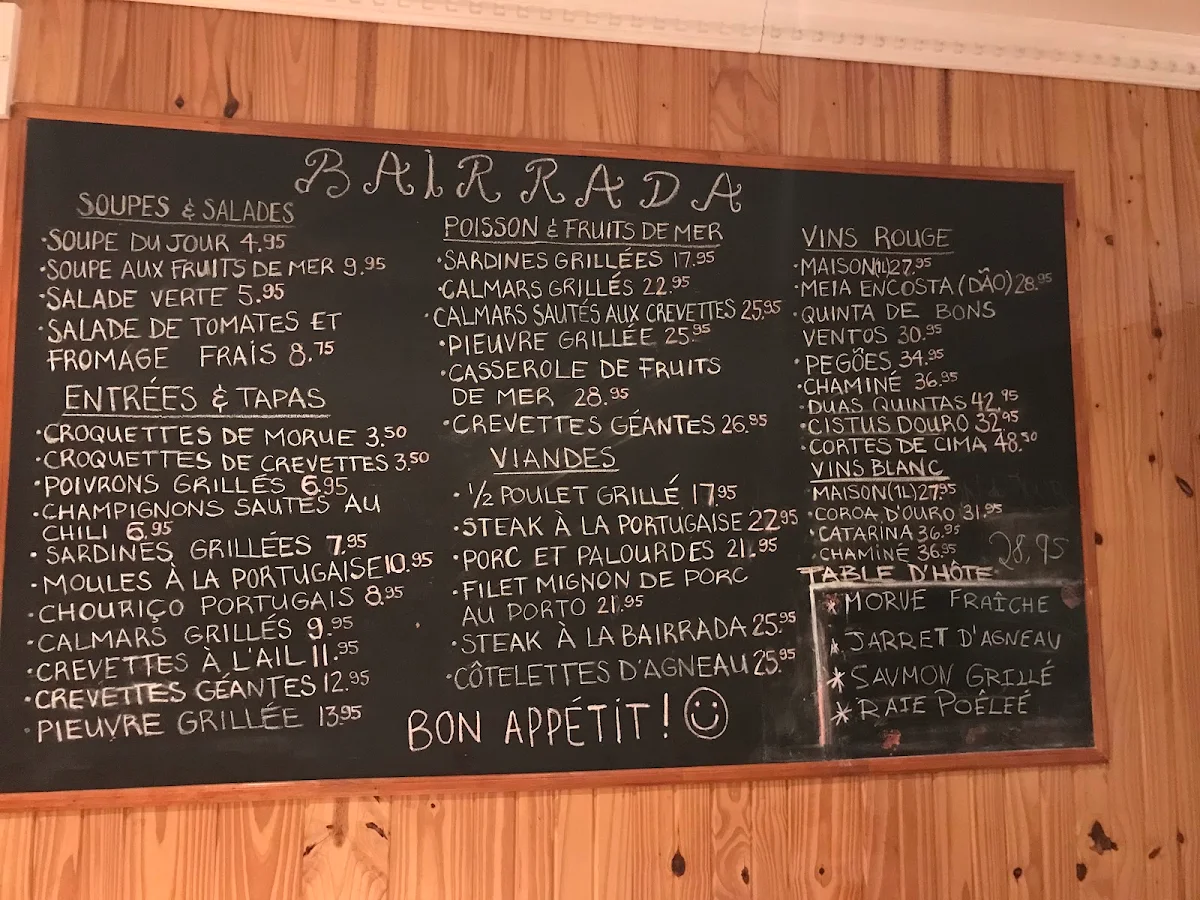 BAIRRADA
SOUPES & SALADES
·SOUPE DU JOUR 4.95
·SOUPE AUX FRUITS DE MER 9.95
·SALADE VERTE 5.95
·SALADE DE TOMATES ET
FROMAGE FRAIS 8.75
ENTRÉES & TAPAS
·CROQUETTES DE MORUE 3.50
·CROQUETTES DE CREVETTES 3.50
·POIVRONS GRILLÉS 6.95
·CHAMPIGNONS SAUTÉS AU
CHILI 6.95
·SARDINES GRILLÉES 7.95
·MOULES À LA PORTUGAISE 10.95
·CHOURIÇO PORTUGAIS 8.95
·CALMARS GRILLÉS 9.95
·CREVETTES À L'AIL 11.95
·CREVETTES GÉANTES 12.95
·PIEUVRE GRILLÉE 13.95
POISSON & FRUITS DE MER
·SARDINES GRILLÉES 17.95
·CALMARS GRILLÉS 22.95
·CALMARS SAUTÉS AUX CREVETTES 25.95
·PIEUVRE GRILLÉE 25.95
·CASSEROLE DE FRUITS
DE MER 28.95
·CREVETTES GÉANTES 26.95
VIANDES
·1/2 POULET GRILLÉ 17.95
·STEAK À LA PORTUGAISE 22.95
·PORC ET PALOURDES 21.95
·FILET MIGNON DE PORC
AU PORTO 21.95
·STEAK À LA BAIRRADA 25.95
·CÔTELETTES D'AGNEAU 25.95
BON APPÉTIT!
VINS ROUGE
·MAISON(1L)27.95
·MEIA ENCOSTA (DÃO) 28.95
·QUINTA DE BONS
VENTOS 30.95
·PEGÕES 34.95
·CHAMINÉ 36.95
·DUAS QUINTAS 42.95
·CISTUS DOURO 32.95
·CORTES DE CIMA 48.50
VINS BLANC
MAISON(1L)27.95
·COROA D'OURO 31.95
·CATARINA 36.95
·CHAMINÉ 36.95
28,95
TABLE D'HÔTE
*MORUE FRAÎCHE
*JARRET D'AGNEAU
*SAUMON GRILLÉ
*RAIE POÊLÉÉ